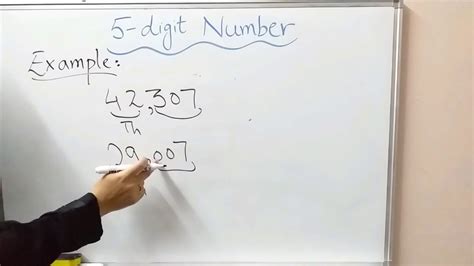 5-digit Number
Example:
42,307
Th
29,007